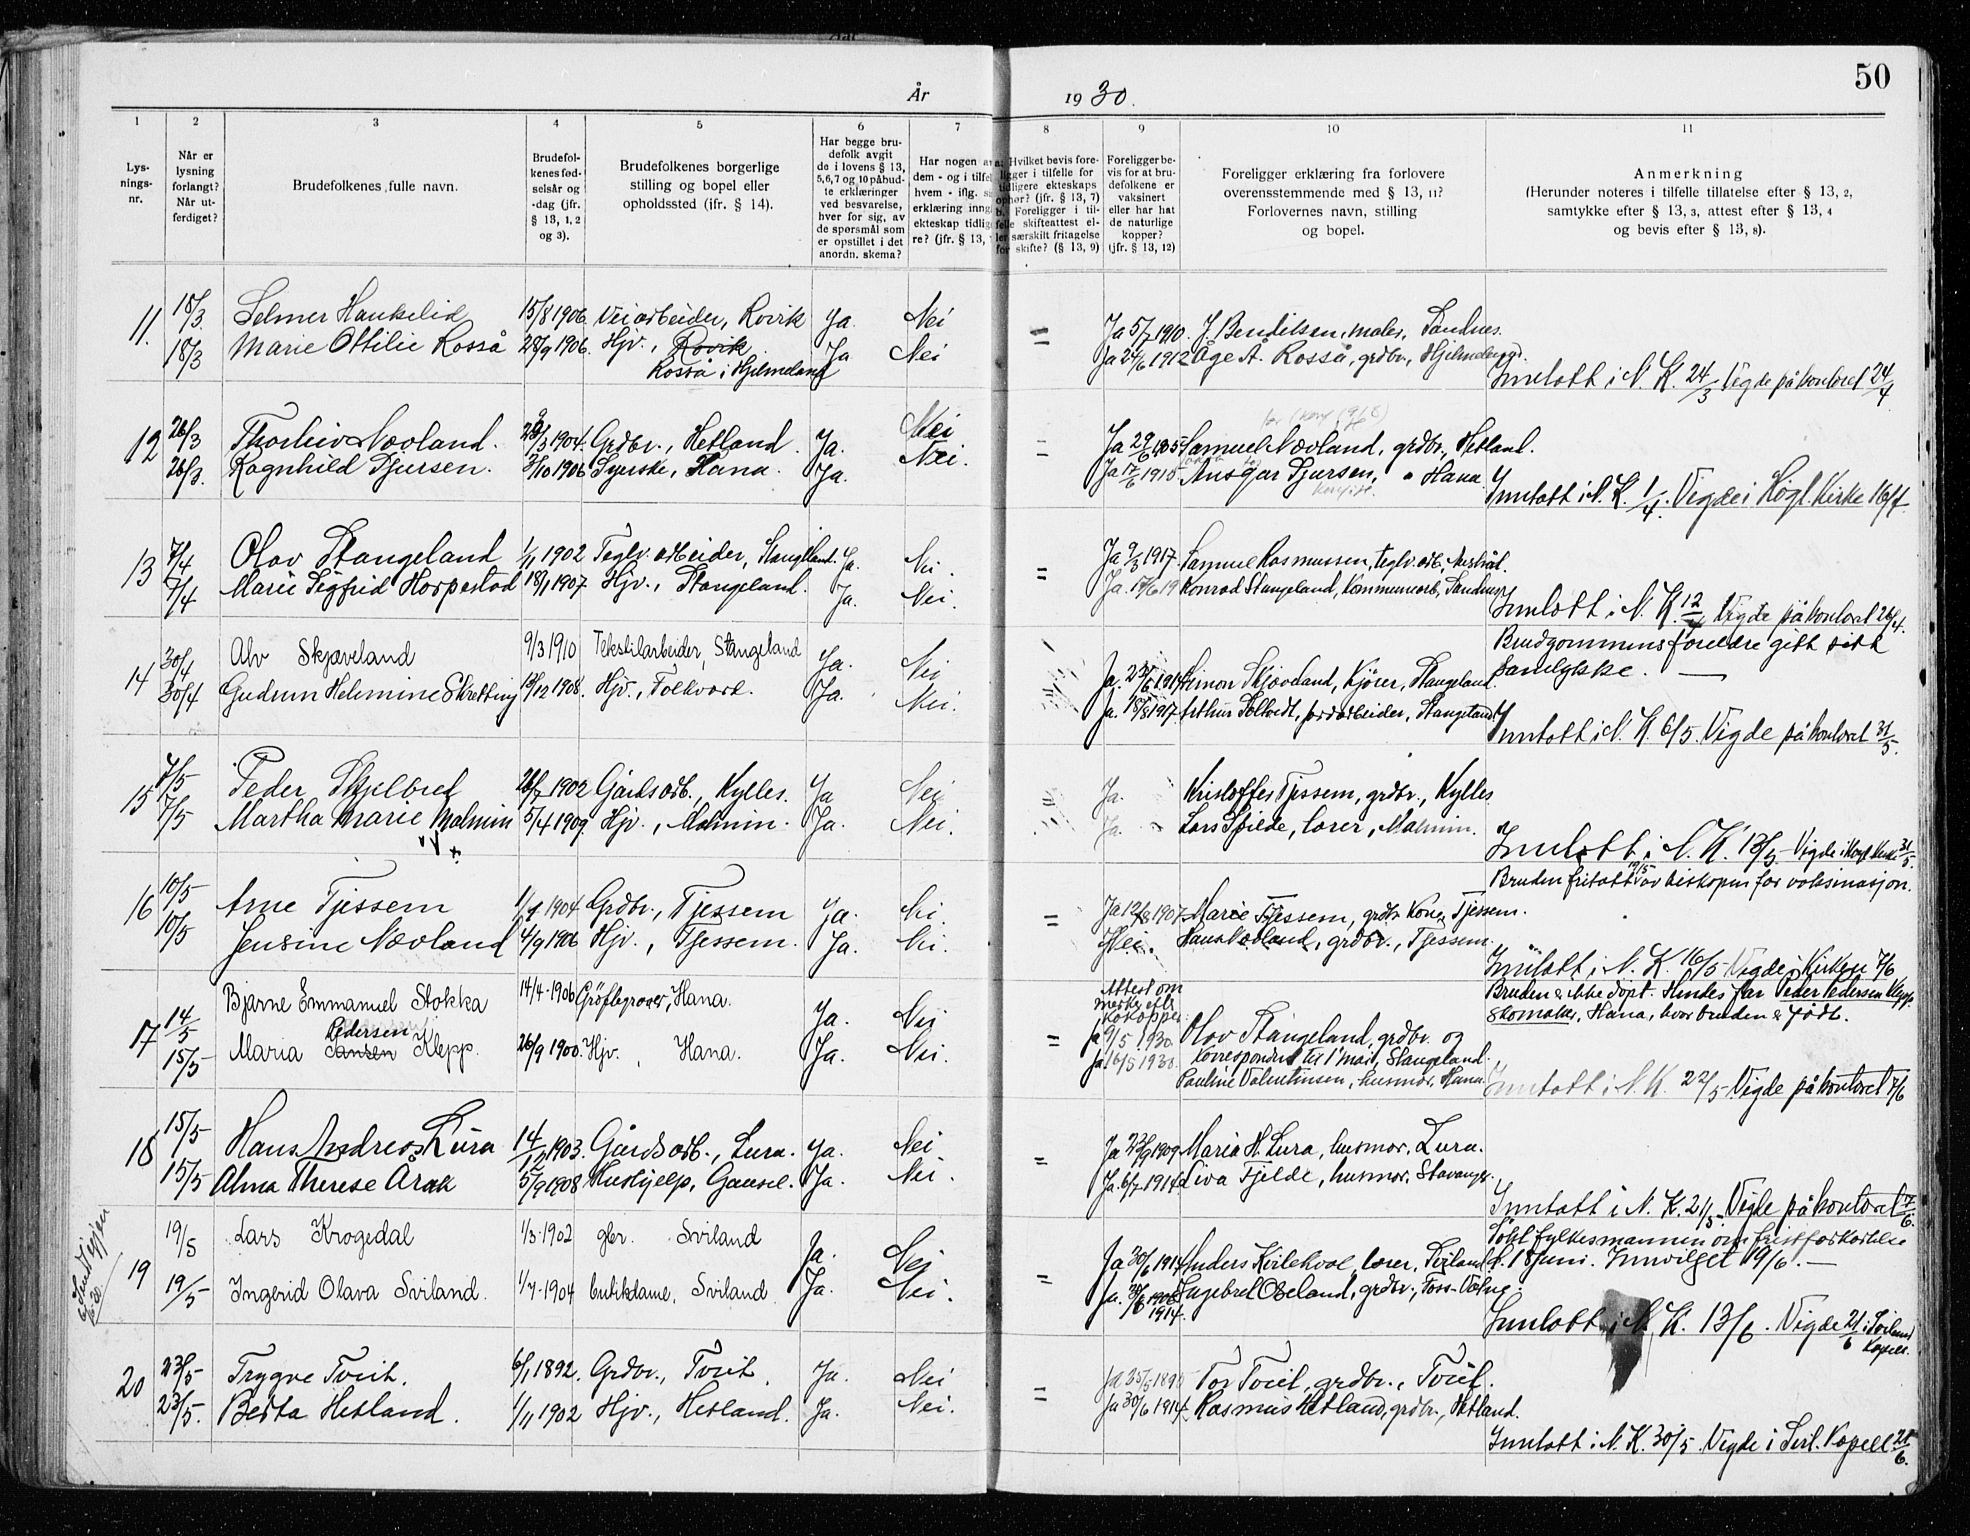 50
År 1930.
1 2 3 4 5 6 7 8 9 10 11
Lys-
nings-
nr.
Når er
lysning
forlangt?
Når ut-
ferdiget?
Brudefolkenes fulle navn.
Brudefol-
kenes fød-
selsår og
-dag (jfr.
§ 13, 1, 2
og 3).
Brudefolkenes borgerlige
stilling og bopel eller
opholdssted (ifr. § 14).
Har begge bru-
defolk avgit
de i lovens § 13,
5,6,7 og 10 påbud-
te erklæringer
ved besvarelse,
hver for sig, av
de spørsmål som
er opstillet i det
anordn. skema?
Har nogen av
dem - og i tilfel
hvem - iflg. s
erklæring inng
ekteskap tidlig
re? (jfr. § 13,
a. Hvilket bevis fore-
ligger i tilfelle for
tidligere ekteskaps
ophør? (jfr. § 13, 7)
b. Foreligger i til-
felle skifteattest el-
ler særskilt fritagelse
for skifte? (§ 13, 9)
Foreligger be-
vis for at bru-
defolkene er
vaksinert
eller har hat
de naturlige
kopper?
(jfr. § 13, 12)
Foreligger erklæring fra forlovere
overensstemmende med § 13, 11?
Forlovernes navn, stilling
og bopel.
Anmerkning
(Herunder noteres i tilfelle tillatelse efter § 13, 2,
samtykke efter § 13, 3, attest efter § 13, 4
og bevis efter § 13, 8).
11. 18/3 Selmer Haukelid 15/8 1906 Veiarbeider, Rovik Ja. Nei = Ja 5/7 1910. J. Bendiksen, maler, Sandnes.
18/3 Marie Ottilie Rosså 28/9 1906. Hjv., Rovik Ja Nei Ja 24/6 1912 Åge A. Rosså, grdbr., Hjelmeland.
Rosså i Hjelmeland
Inntatt i N. K. 24/3 Vigde på kontoret 24/4
12 26/3 Thorleiv Nævland. 1904. Grdbr., Hetland Ja. Nei = Ja 29/6 Samuel Nævland, grdbr., Hetland.
26/3. Ragnhild Djursen. 3/10 1906 Syerske, Hana. Ja. Nei. Ja 17/6 1918. Ansgar Djursen, " Hana
Inntatt i N. K. 1/4. Vigde i Høgl. Kirke 16/4
13 7/4 Olav Stangeland 1/1 1902 Teglv. arbeider, Stangeland. Ja. Nei. = Ja 9/3 1917. Samuel Rasmussen, teglv. arb.,
7/4 Marie Sigfrid Horpestad 18/1 1907 Hjv., Stangeland. Ja. Nei. Ja. 17/6 19 Konrad Stangeland, Kommunearb, Sandnes
Inntatt i N. K. 12/4 Vigde på kontoret 26/4.
14 30/4 Alv Skjæveland 9/3 1910 Tekstilarbeider, Stangeland Ja. Nei = Ja. Simon Skjæveland, Kjører, Stangeland.
30/4 Gudrun Helmine Skretting 18/12 1908. Hjv., Folkvord. Ja. Nei. Ja. 18/8 1917 Arthur jordarbeider, Stangeland
Brudgommens foreldre gitt sitt
samtykke. —
Inntatt i N. K. 6/5. Vigde på kontoret 31/5.
15 7/5 Peder Skjelbred 26/7 1902 Gårdsarb., Kylles. Ja Nei = Ja. Kristoffer Tjessem, grdbr., Kylles
7/5 Martha Marie Malmin 5/4 1909. Hjv., Malmin. Ja. Nei. Ja. Lars Spilde, lærer, Malmin.
Inntatt i N. K. 13/5 - Vigde i Høgl. Kirke 31/5
16 10/5 Arne Tjessem 1904 Grdbr., Tjessem Ja. Nei. = Ja 1907 Marie Tjessem, grdbr. Kone, Tjessem.
10/5 Jensine Nævland 4/9 1906 Hjv., Tjessem. Ja. Nei. Nei. Hans Nævland, grdbr., Tjessem.
Bruden fritatt 19/5 av biskopen for vaksinasjon.
Inntatt i N. K. 16/5 Vigde i Kirken 7/6
17 14/5 Bjarne Emmanuel Stokka 14/4-1906 Grøftegraver, Hana. Ja. Nei = Attest om
merke efter
kokopper
Ja 9/5 1930 Olav Stangeland, grdbr. og
korrespondent til 1' mai, Stangeland.
15/5 Maria Jansen Pedersen Klepp. 26/9 1900. Hjv., Hana. Ja. Nei. Ja. 16/5 1930. Pauline Valentinsen, husmor, Hana
Bruden er ikke døpt. Hendes far Peder Pedersen Klepp
Skomaker, Hana, hvor bruden er født.
Inntatt i N. K. 22/5 Vigde på kontoret 7/6
18 15/5 Hans Andreas Lura 14/12 1903. Gårdsarb., Lura. Ja. Nei = Ja 23/9 1909 Maria H. Lura, husmor, Lura.
15/5 Alma Therese Årak 5/9 1908 Hushjelp, Gausel. Ja. Nei. Ja. 6/7 1914 Liva Fjelde, husmor, Stavanger.
Inntatt i N. K. 21/5 Vigde på kontoret 7/6.
19 19/5 Lars Krogedal 1/3-1902 gbr. Sviland Ja Nei = Ja 30/6 1914 Anders Kvilekval, lærer, Sviland
19/5 Ingerid Olava Sviland. 1/7-1904 butikdame, Sviland. Ja. Nei. Ja. 1914. Ingebret Obeland, grdbr., Foss-Vatne.
Søkt fylkesmannen om fristforkortelse
18 juni. Innvilget 19/6. —
Inntatt i N. K. 13/6. Vigde 21/6 i Sviland
kapell.
20 23/5 Trygve Tveit. 6/1 1892. Grdbr., Tveit. Ja. Nei = Ja Tor Tveit, grdbr., Tveit.
23/5. Berta Hetland. 1/11 1902 Hjv., Hetland. Ja. Nei. Ja 30/6 1914 Rasmus Hetland, grdbr., Hetland.
Inntatt i N. K. 30/5. Vigde i Svil. Kapell 21/6.